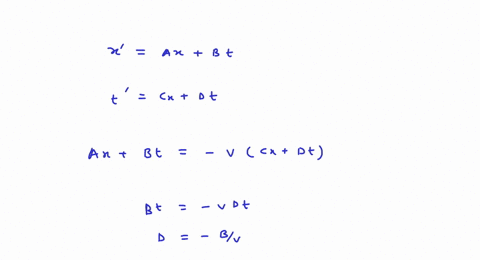 x' = Ax + Bt
t' = Cx + Dt
Ax + Bt = - v (Cx + Dt)
Bt = - v Dt
D = - B/v